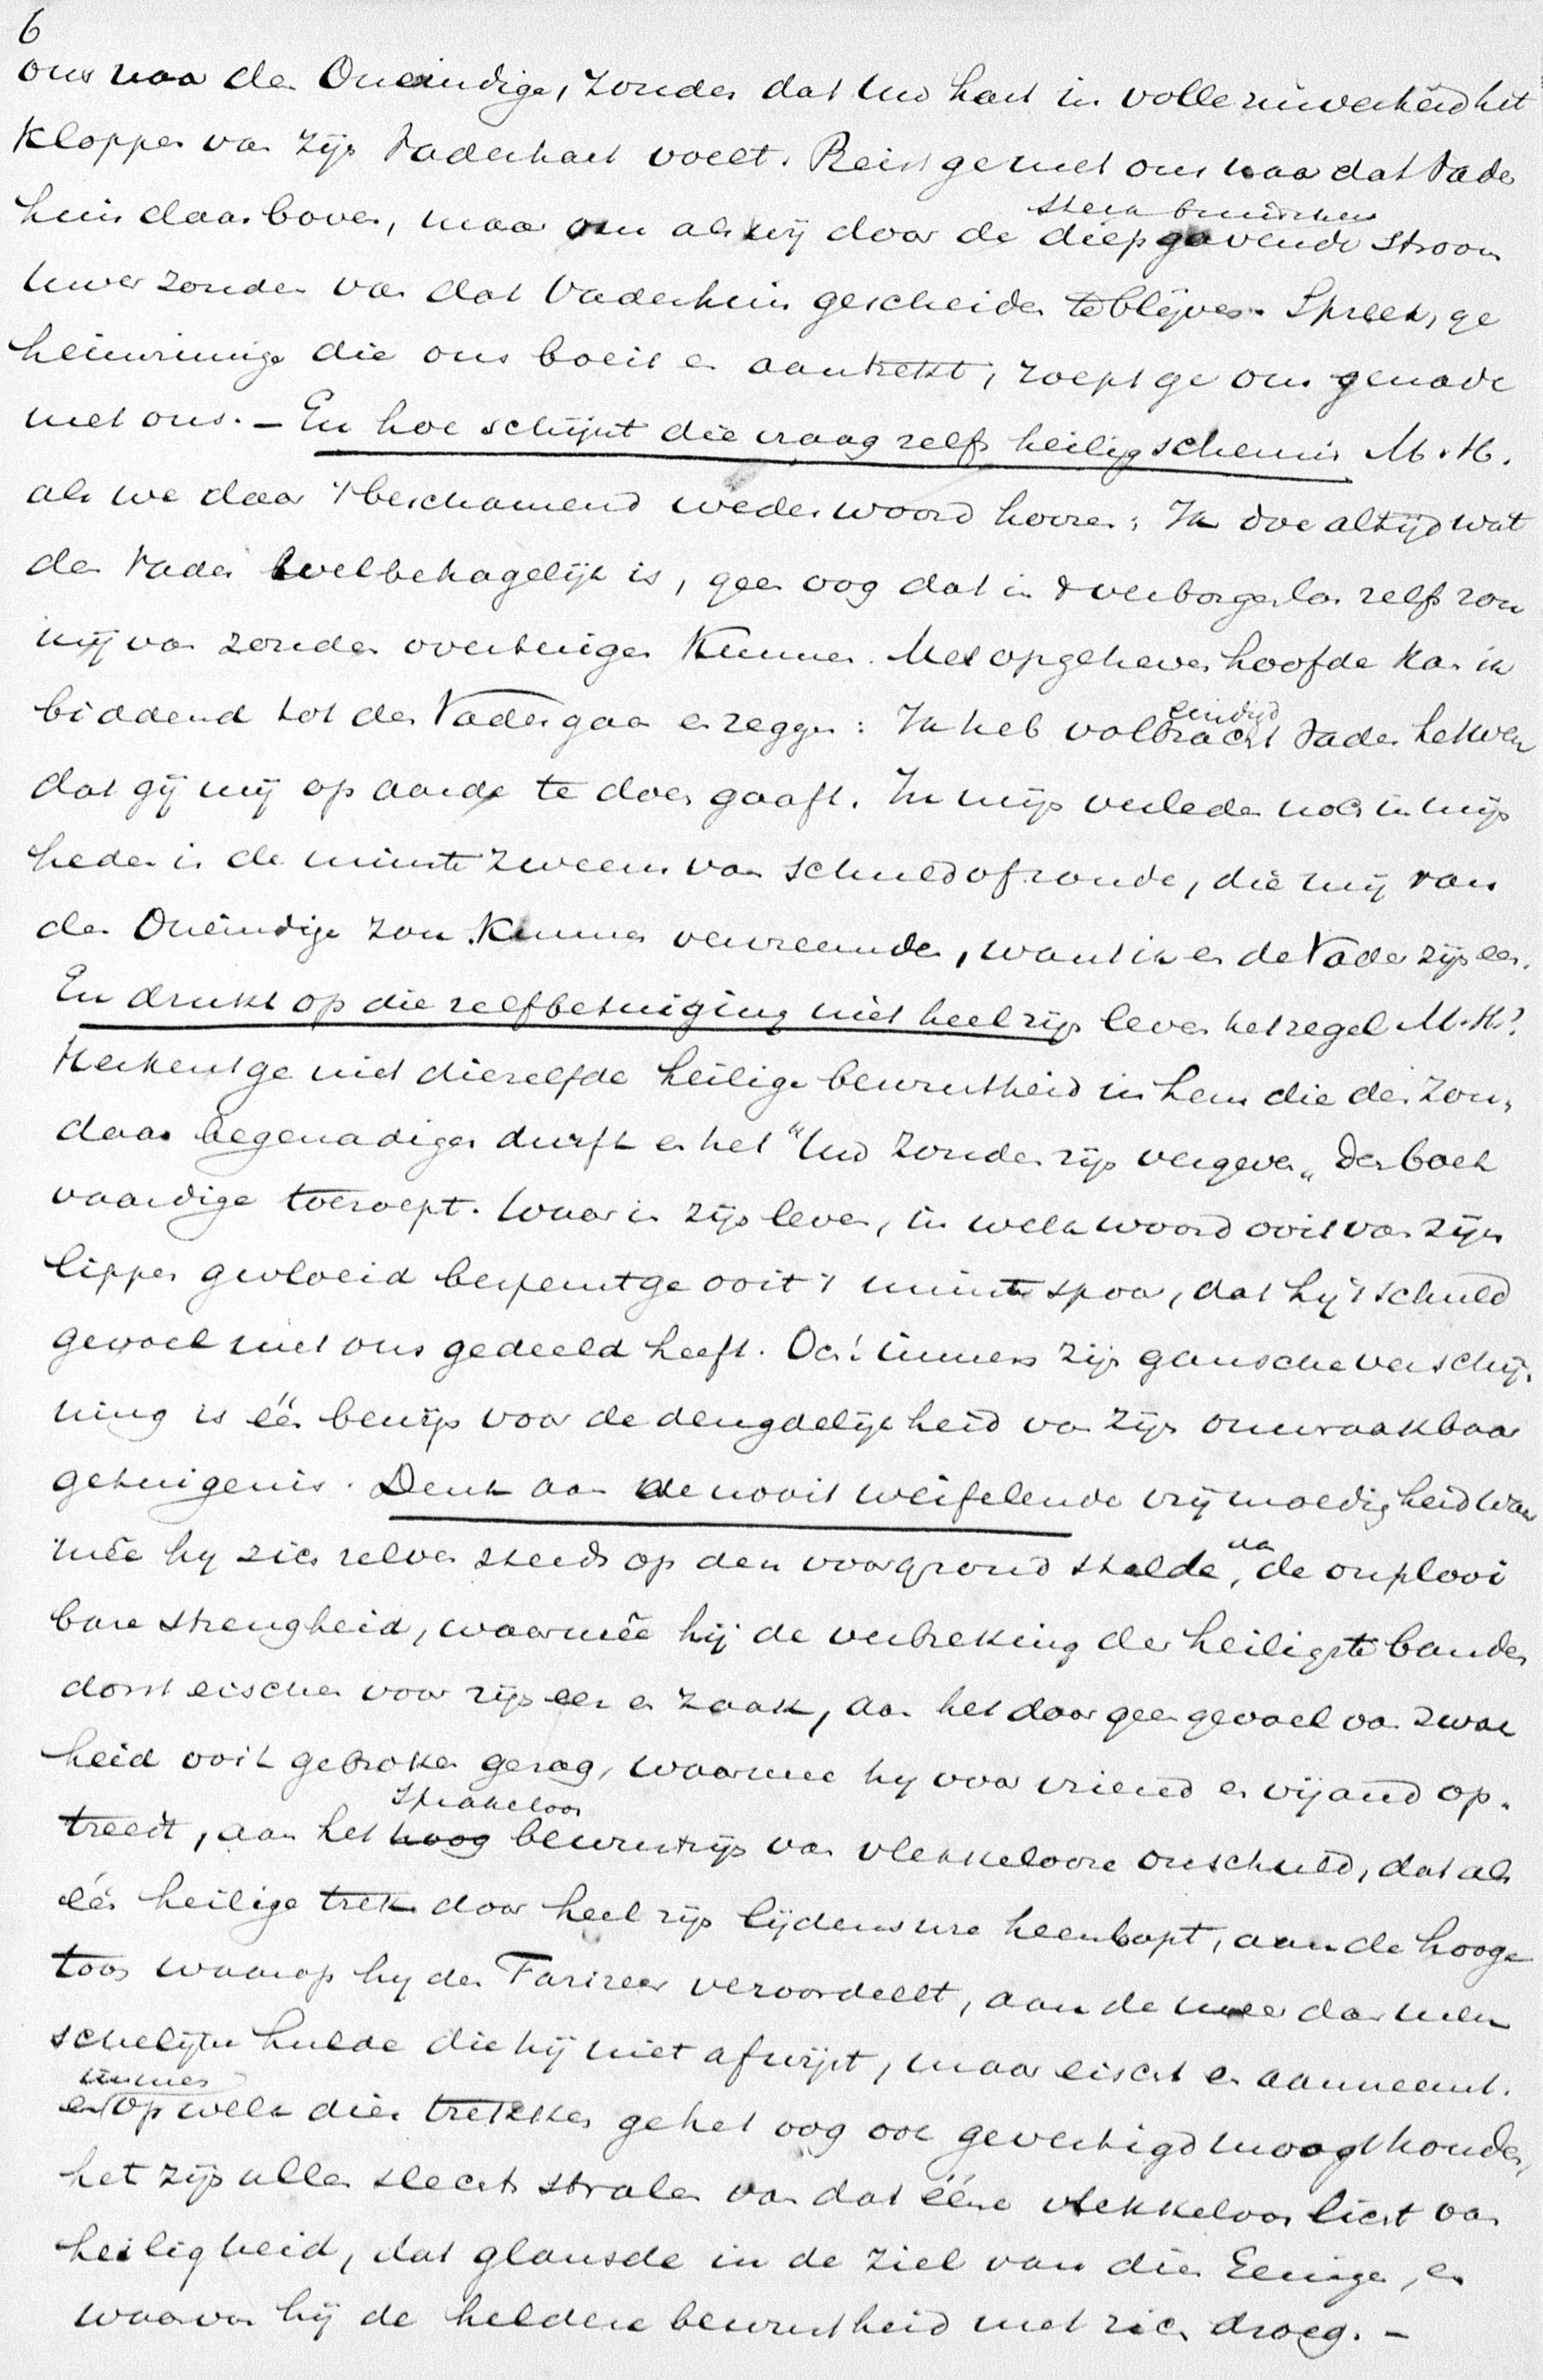 6
ons naar den Oneindige, zonder dat Uw hart in volle zuiverheid het
kloppen van zijn Vaderhart voelt. Reist ge met ons naar dat Vader
huis daarboven, maar om als wij door de diepgavende stroom
sterk bruischende
Uwer zonden van dat Vaderhuis gescheiden te blijven. Spreek, ge
heimzinnige die ons boeit en aantrekt, roept ge om genade
met ons. – En hoe schijnt die vraag zelfs heiligschennis M. H.
als we daar 't beschamend wederwoord hooren: Ik doe altijd wat
den Vader welbehagelijk is, geen oog dat in 't verborgen las zelfs zou
mij van zonden overtuigen kunnen. Met opgeheven hoofde kan ik
biddend tot den Vader gaan en zeggen: Ik heb volbracht Vader het werk
eindigd
dat gij mij op aarde te doen gaaft. In mijn verleden noch in mijn
heden is de minste zweem van schuld of zonde, die mij van
den Oneindige zou kunnen vervreemden, want ik en de Vader zijn een.
En drukt op die zelfbetuiging niet heel zijn leven het zegel M. H.?
Herkent ge niet diezelfde heilige bewustheid in hem die den zon„
daar begenadigen durft en het "Uw zonden zijn vergeven„ den boet
vaardige toeroept. Waar in zijn leven, in welk woord ooit van zijn
lippen gevloeid bespeurt ge ooit 't minste spoor, dat hij 't schuld
gevoel met ons gedeeld heeft. Och! immers zijn gansche verschij„
ning is één bewijs voor de deugdelijkheid van zijn onwraakbaar
getuigenis. Denk aan de nooit weifelende vrijmoedigheid waar
mêe hij zich zelven steeds op den voorgrond stelde, aan de onplooi
bare strengheid, waarmêe hij de verbreking der heiligste banden
dorst eischen voor zijn eer en zaak, aan het door geen gevoel van zwak
heid ooit gebroken gezag, waarmee hij voor vriend en vijand op„
treedt, aan het hoog bewustzijn van vlekkelooze onschuld, dat als
Sprakeloos
één heilige trek door heel zijn lijdensure heenloopt, aan de hooge
toon waarop hij den Farizeer veroordeelt, aan de meer dan men
schelijke hulde die hij niet afwijst, maar eischt en aanneemt.
immers
en op welk dier trekken ge het oog ook gevestigd moogt houden,
het zijn allen slechts stralen van dat ééne vlekkeloos licht van
heiligheid, dat glansde in de ziel van dien Eenige, en
waarvan hij de heldere bewustheid met zich droeg. –